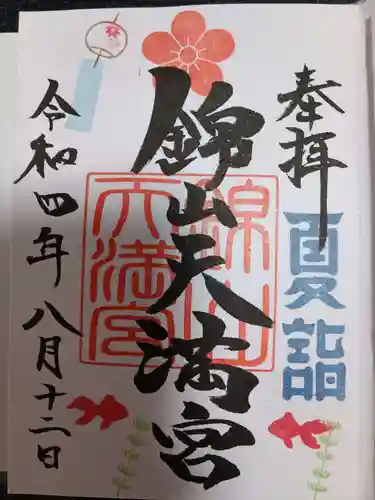 奉拝
夏詣
錦山天満宮
錦山天満宮
令和四年八月十二日